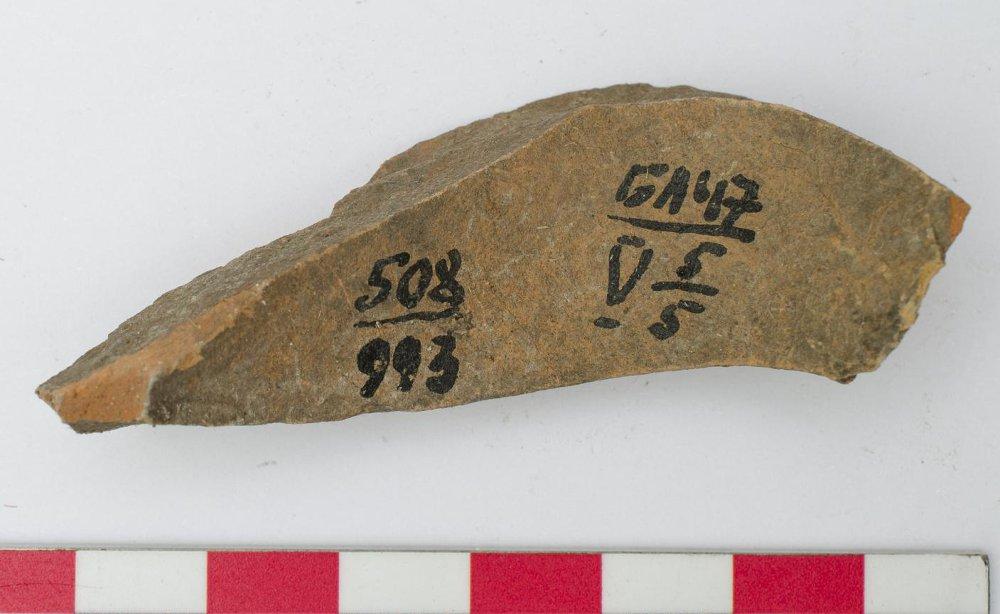 508
993
БА47
V 5
5